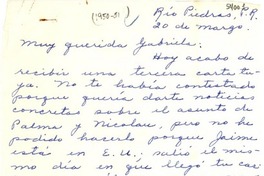 (1950-51)
Río Piedras, P.R.
20 de marzo.
Muy querida Gabriela:
Hoy acabo de
recibir una tercera carta tu-
ya. No te había contestado
porque quería darte noticias
concretas sobre el asunto de
Palma y Nicolau, pero no he
podido hacerlo porque Jaime
está en E.U., salió el mis-
mo día en que llegó tu car